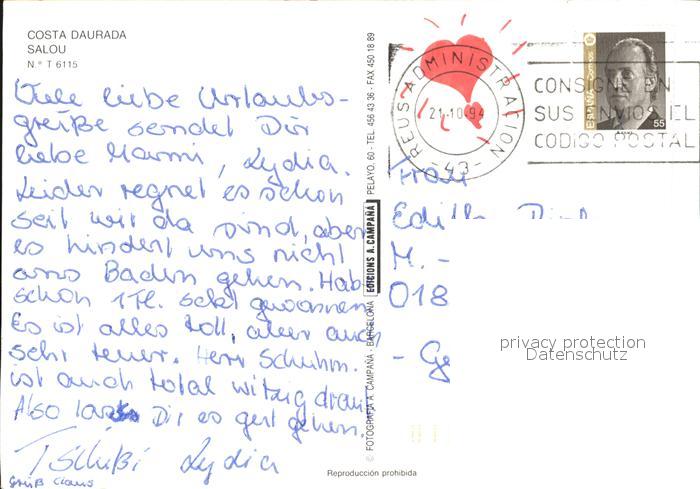 COSTA DAURADA
SALOU
N.° T 6115
Viele liebe Urlaubs-
grüße sendet Dir
liebe Mammi, Lydia.
Leider regnet es schon
seit wir da sind, aber
es hindert uns nicht
ans Baden gehen. Hab
schon 1 Fl. Sekt gewonnen
Es ist alles toll, aber auch
sehr teuer. Herr Schuhm.
ist auch total witzig drauf
Also lass Dir es gut gehen.
Tschüßi Lydia
Gruß Claus
© FOTOGRAFIA A. CAMPAÑA - BARCELONA
EDICIONS A. CAMPAÑA
PELAYO, 60 - TEL. 456 43 36 - FAX 450 18 89
Reproducción prohibida
REUS-ADMINISTRATION
21-10-94
- 43 -
CONSIGNE EN
SUS ENVIOS EL
CODIGO POSTAL
ESPAÑA
55
Frau
Edith
M. -
018
- Ge
privacy protection
Datenschutz